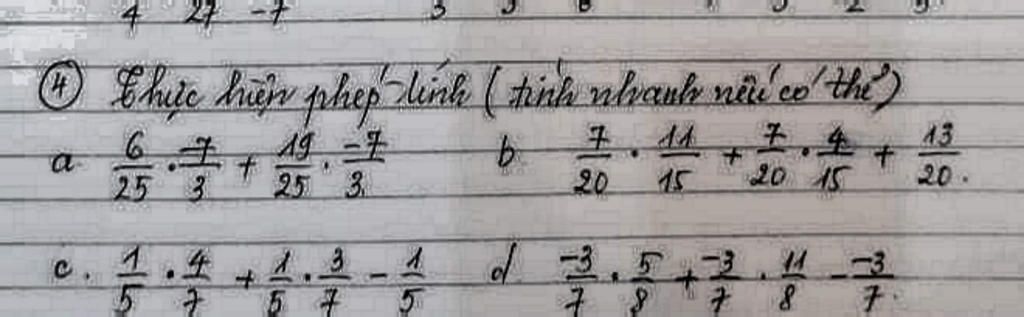 4 27 -7 3
④ Thực hiện phép tính (tính nhanh nếu có thể)
a 6/25 . -7/3 + 19/25 . -7/3 b 7/20 . 11/15 + 7/20 . 4/15 + 13/20 .
c. 1/5 . 4/7 + 1/5 . 3/7 - 1/5 d -3/7 . 5/8 + -3/7 . 11/8 - -3/7 .